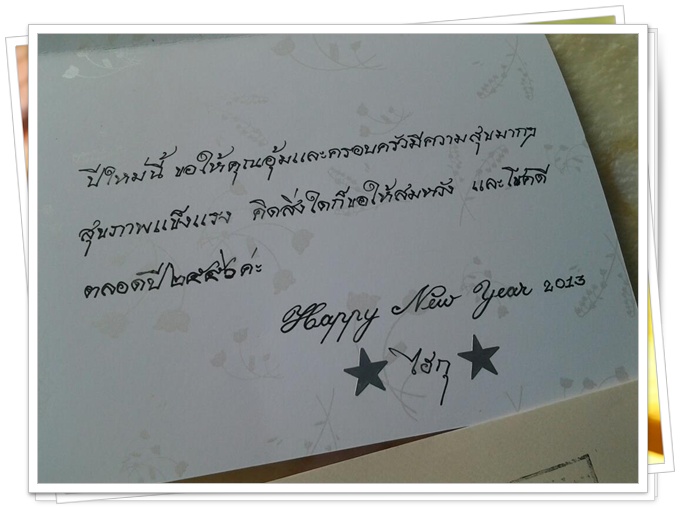 ปีใหม่นี้ ขอให้คุณอุ้มและครอบครัวมีความสุขมากๆ
สุขภาพแข็งแรง คิดสิ่งใดก็ขอให้สมหวัง และโชคดี
ตลอดปี ๒๕๕๖ ค่ะ
Happy New Year 2013
ไฮกุ